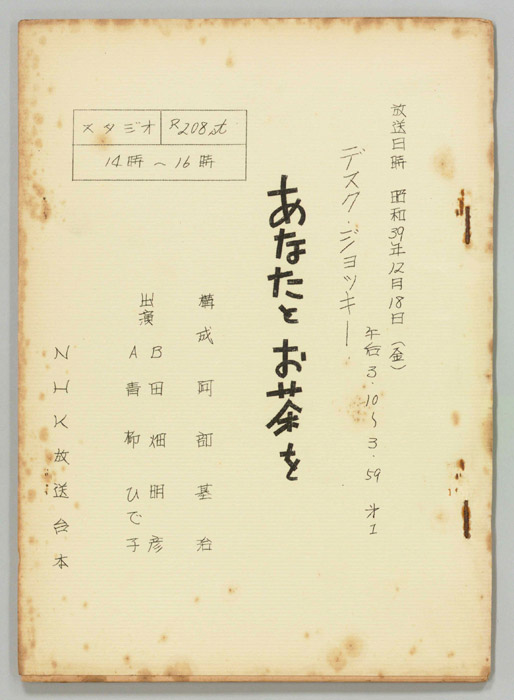 放送日時 昭和39年12月18日(金)
午后3.10~3.59 オ1
デスク・ジョッキー
あなたとお茶を
構成 阿部基治
出演
B 田畑明彦
A 青柳ひで子
スタジオ R208st
14時~16時
NHK放送台本